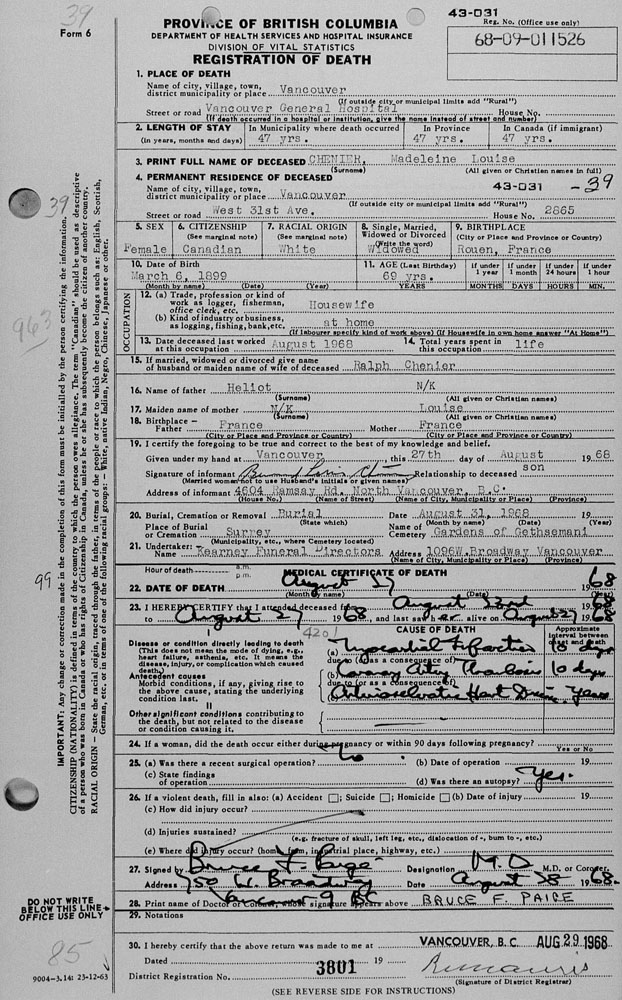 39
Form 6
43-031
Reg. No. (Office use only)
PROVINCE OF BRITISH COLUMBIA
68-09-011526
DEPARTMENT OF HEALTH SERVICES AND HOSPITAL INSURANCE
DIVISION OF VITAL STATISTICS
REGISTRATION OF DEATH
1. PLACE OF DEATH
Name of city, village, town, district municipality or place Vancouver
(If outside city or municipal limits add "Rural")
Street or road Vancouver General Hospital House No.
(If death occurred in a hospital or institution, give the name instead of street and number)
2. LENGTH OF STAY In Municipality where death occurred In Province In Canada (if immigrant)
(in years, months and days) 47 yrs. 47 yrs. 47 yrs.
3. PRINT FULL NAME OF DECEASED CHENIER, Madeleine Louise
(Surname) (All given or Christian names in full)
4. PERMANENT RESIDENCE OF DECEASED
43-031 -39
Name of city, village, town, district municipality or place Vancouver
(If outside city or municipal limits add "Rural")
Street or road West 31st Ave. House No. 2865
5. SEX 6. CITIZENSHIP 7. RACIAL ORIGIN 8. Single, Married, Widowed or Divorced 9. BIRTHPLACE
(See marginal note) (See marginal note) (Write the word) (City or Place and Province or Country)
Female Canadian White Widowed Rouen, France
10. Date of Birth 11. AGE (Last Birthday) If under 1 year If under 1 month If under 24 hours If under 1 hour
March 6, 1899 69 yrs.
(Month by name) (Date) (Year) YEARS MONTHS DAYS HOURS MIN.
OCCUPATION
12. (a) Trade, profession or kind of work as logger, fisherman, office clerk, etc. Housewife
(b) Kind of industry or business, as logging, fishing, bank, etc. at home
(If labourer specify kind of work above) (If Housewife in own home answer "At Home")
13. Date deceased last worked at this occupation August 1968 14. Total years spent in this occupation life
15. If married, widowed or divorced give name of husband or maiden name of wife of deceased Ralph Chenier
16. Name of father Heliot N/K
(Surname) (All given or Christian names)
17. Maiden name of mother N/K Louise
(Surname) (All given or Christian names)
18. Birthplace - Father France Mother France
(City or Place and Province or Country) (City or Place and Province or Country)
19. I certify the foregoing to be true and correct to the best of my knowledge and belief.
Given under my hand at Vancouver, this 27th day of August 19 68
Signature of informant Relationship to deceased son
(Married woman not to use Husband's initials or given names)
Address of informant 4604 Ramsay Rd. North Vancouver, B.C.
(House No.) (Name of Street) (Name of City, Municipality or Place) (Province)
20. Burial, Cremation or Removal Burial Date August 31, 1968 19
(State which) (Month by name) (Date) (Year)
Place of Burial or Cremation Surrey Name of Cemetery Gardens of Gethsemani
(Municipality, etc., where Cemetery located)
21. Undertaker: Name Kearney Funeral Directors Address 1096W. Broadway Vancouver
(Name of City, Municipality or Place) (Province)
Hour of death a.m. p.m. MEDICAL CERTIFICATE OF DEATH
22. DATE OF DEATH August 27 1968
(Month by name) (Date)
23. I HEREBY CERTIFY that I attended deceased from August 22nd 1968
to August 27 1968, and last saw her alive on August 27 1968
I 4201 CAUSE OF DEATH Approximate interval between onset and death
Disease or condition directly leading to death
(This does not mean the mode of dying, e.g., heart failure, asthenia, etc. It means the disease, injury, or complication which caused death.)
(a) Myocardial Infarction 10 days
due to (or as a consequence of)
Antecedent causes
Morbid conditions, if any, giving rise to the above cause, stating the underlying condition last.
(b) Coronary Artery Thrombosis 10 days
due to (or as a consequence of)
Arteriosclerotic Heart Disease Years
II
Other significant conditions contributing to the death, but not related to the disease or condition causing it.
24. If a woman, did the death occur either during pregnancy or within 90 days following pregnancy?
Yes or No
25. (a) Was there a recent surgical operation? No (b) Date of operation 19
(c) State findings of operation (d) Was there an autopsy? Yes.
26. If a violent death, fill in also: (a) Accident ☐; Suicide ☐; Homicide ☐ (b) Date of injury 19
(c) How did injury occur?
(d) Injuries sustained?
(e.g. fracture of skull, left leg, etc., dislocation of-, burn to-, etc.)
(e) Where did injury occur? (home, farm, industrial place, highway, etc.)
27. Signed by Bruce F. Paige Designation M.D. M.D. or Coroner.
Address 750 W. Broadway Date August 28 1968
Vancouver 9 BC
28. Print name of Doctor or Coroner, whose signature appears above BRUCE F. PAIGE
29. Notations
30. I hereby certify that the above return was made to me at VANCOUVER, B.C. AUG 29 1968
Dated 19
3801
District Registration No.
(Signature of District Registrar)
(SEE REVERSE SIDE FOR INSTRUCTIONS)
39
963
99
IMPORTANT: Any change or correction made in the completion of this form must be initialled by the person certifying the information.
CITIZENSHIP (NATIONALITY) is defined in terms of the country to which the person owes allegiance. The term "Canadian" should be used as descriptive of a person who was born in Canada or who has rights of Citizenship in Canada, unless he or she has subsequently become the citizen of another country.
RACIAL ORIGIN - State the racial origin, traced through the father, in terms of the people or race to which the person belongs such as: English, Scottish, German, etc. or in terms of one of the following racial groups: - White, native Indian, Negro, Chinese, Japanese or other.
DO NOT WRITE
BELOW THIS LINE
OFFICE USE ONLY
85
9004-3.14: 23-12-63